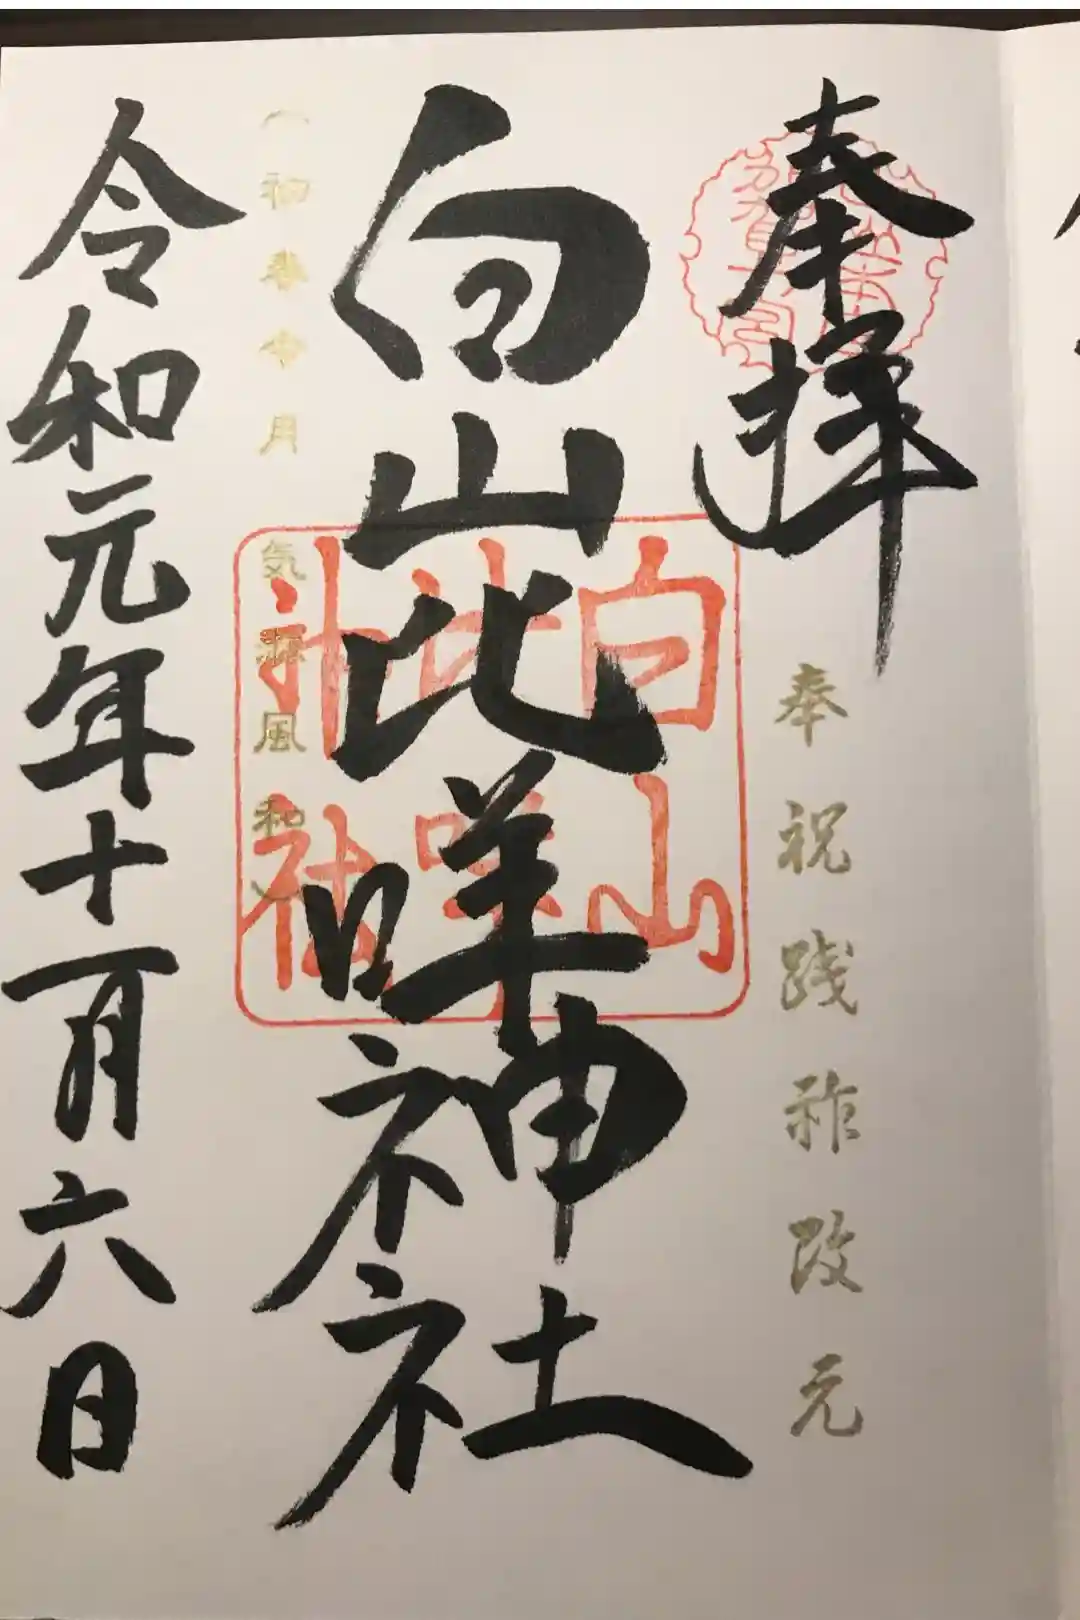 奉拝
奉祝践祚改元
白山比咩神社
白山
比咩
神社
(初春令月
気淑風和)
令和元年十一月六日